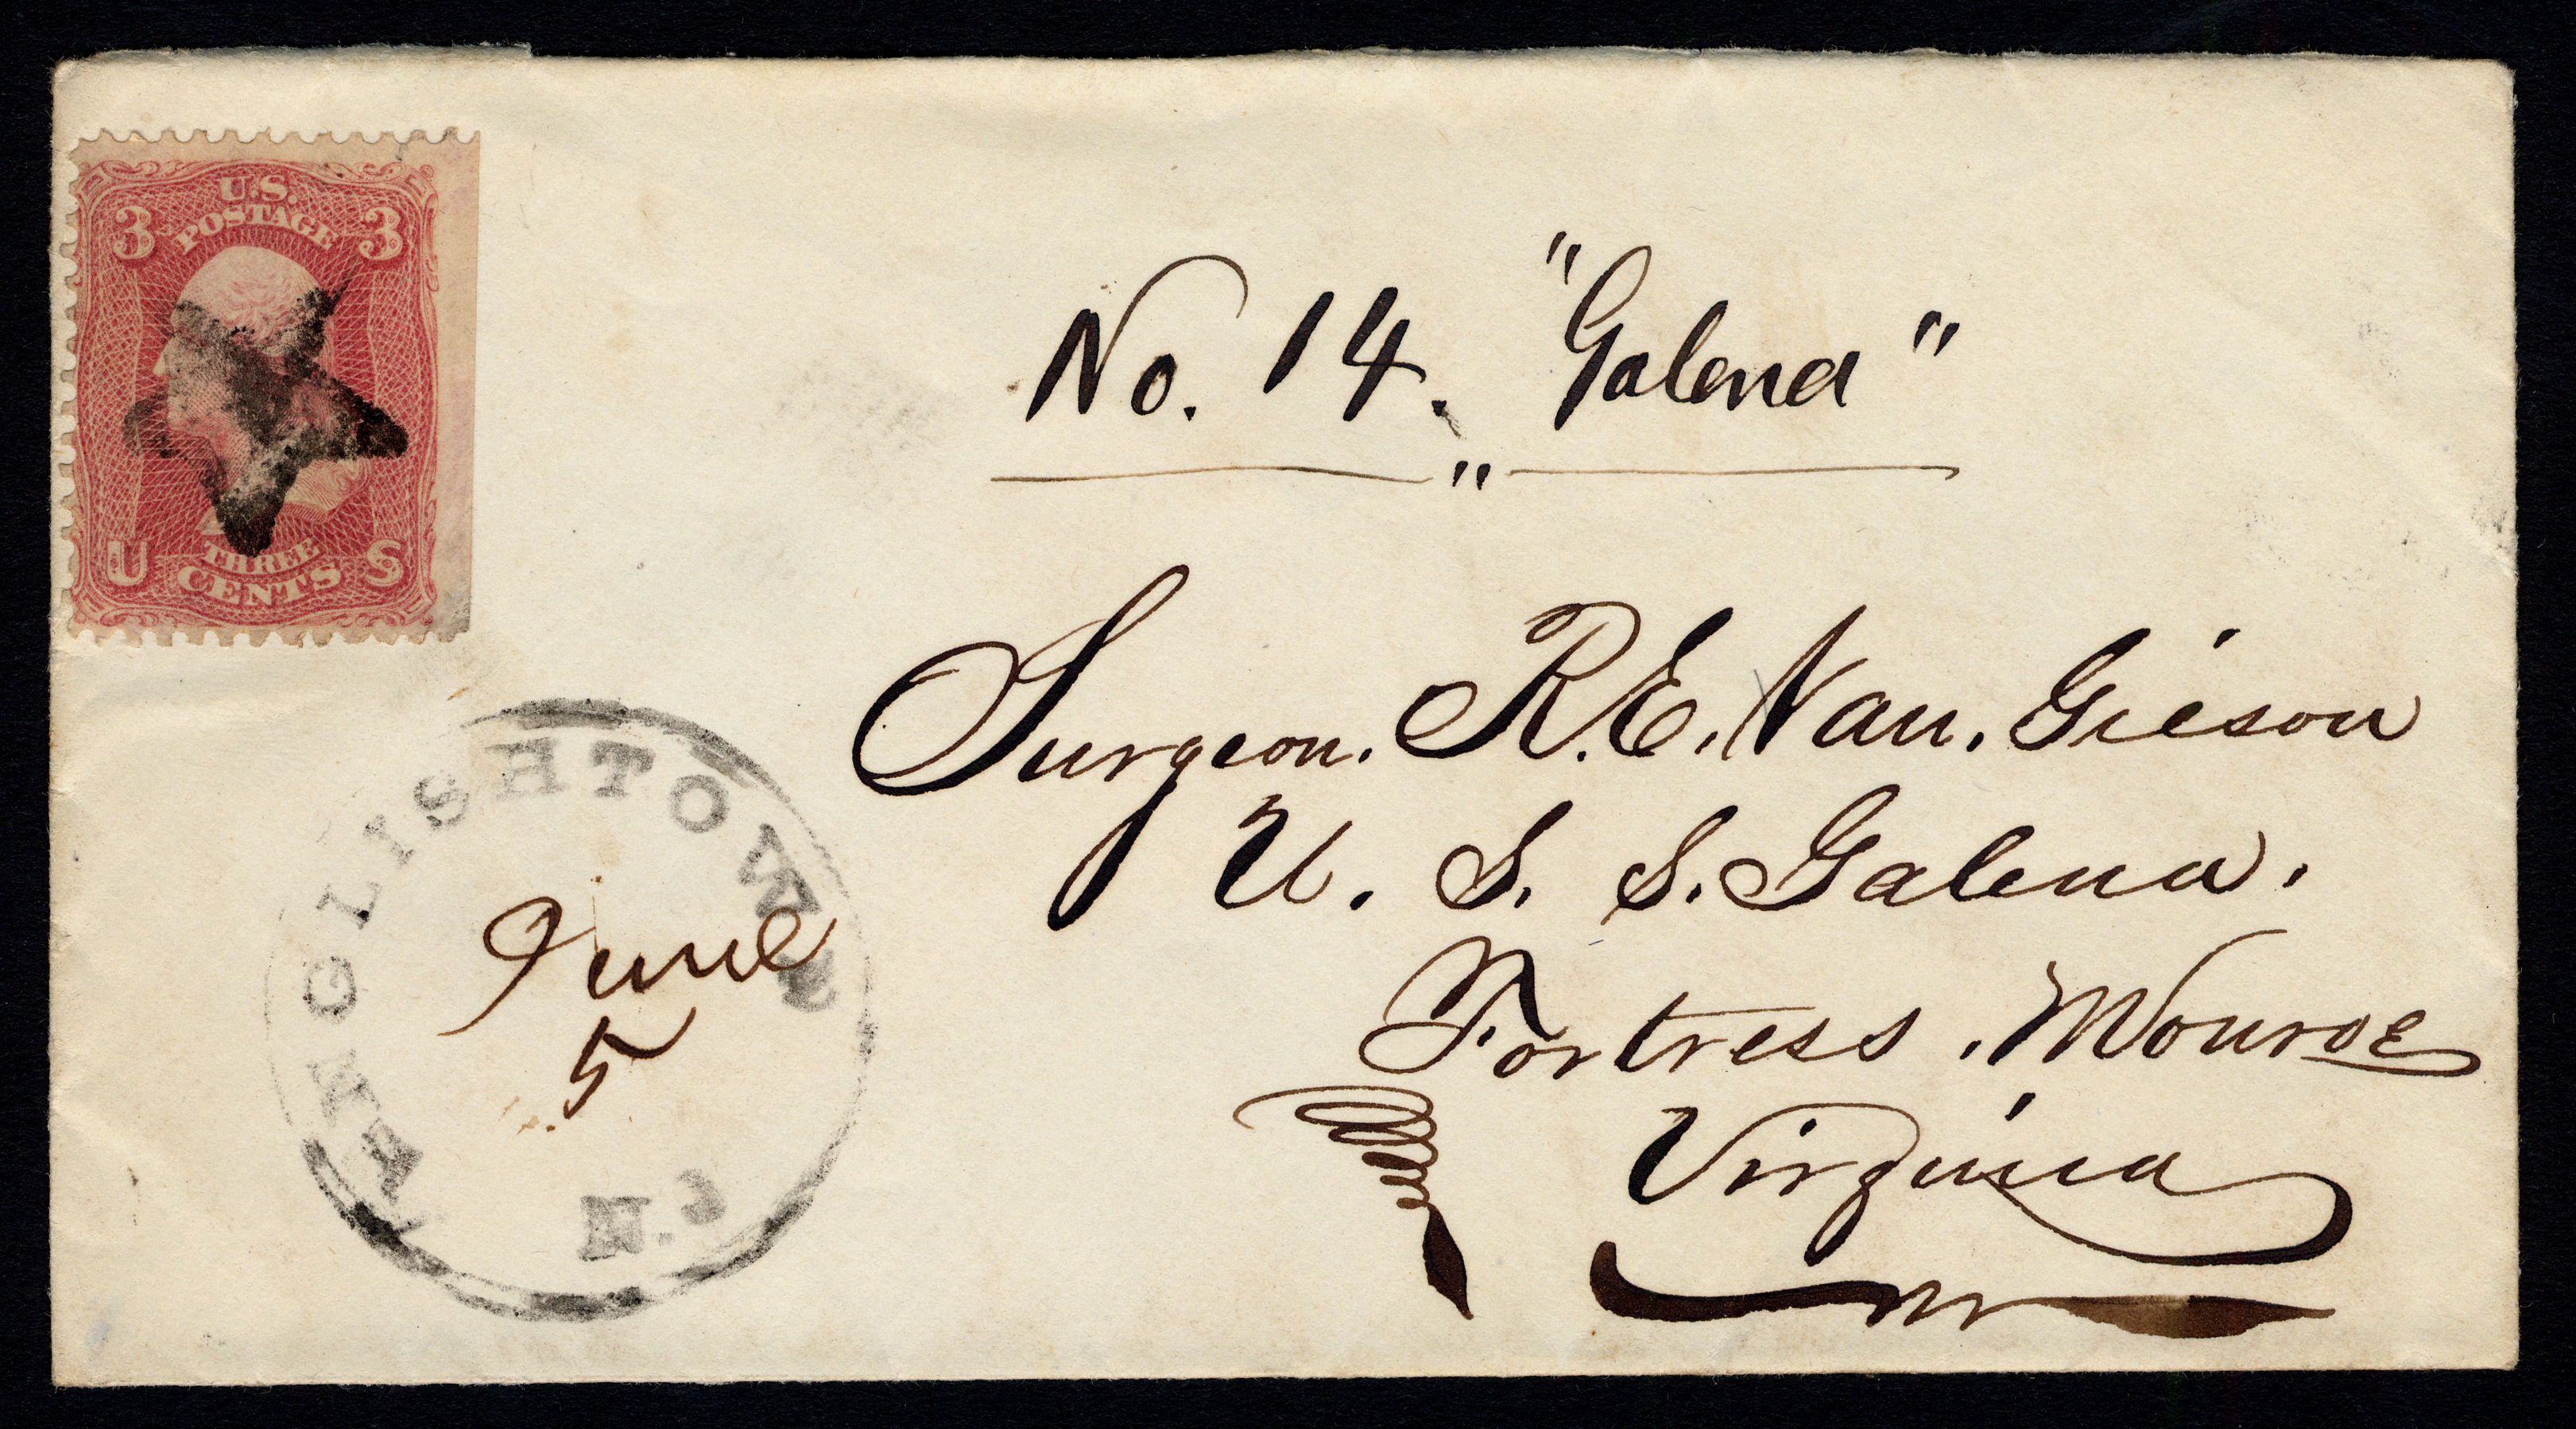 U.S.
POSTAGE
3 3
U S
THREE
CENTS
No. 14. "Galena"
"
Surgeon. R. E. Van. Gieson
U. S. S. Galena.
Fortress. Monroe
Virginia
ENGLISHTOWN
June
5
N.J